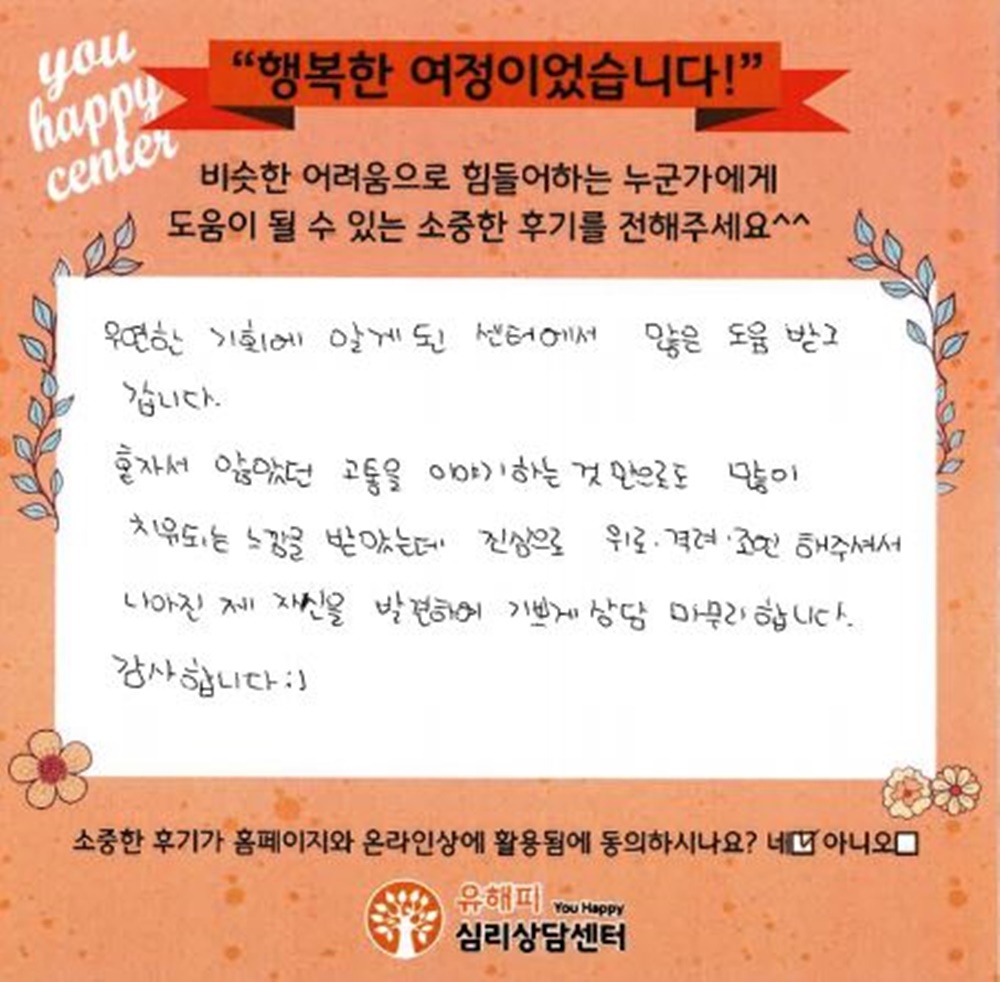 you
happy
center
“행복한 여정이었습니다!”
비슷한 어려움으로 힘들어하는 누군가에게
도움이 될 수 있는 소중한 후기를 전해주세요^^
우연한 기회에 알게 된 센터에서 많은 도움 받고
갑니다.
혼자서 앓았던 고통을 이야기하는 것 만으로도 많이
치유되는 느낌을 받았는데 진심으로 위로·격려·조언 해주셔서
나아진 제 자신을 발견하여 기쁘게 상담 마무리 합니다.
감사합니다 :)
소중한 후기가 홈페이지와 온라인상에 활용됨에 동의하시나요? 네☑ 아니오☐
유해피 You Happy
심리상담센터